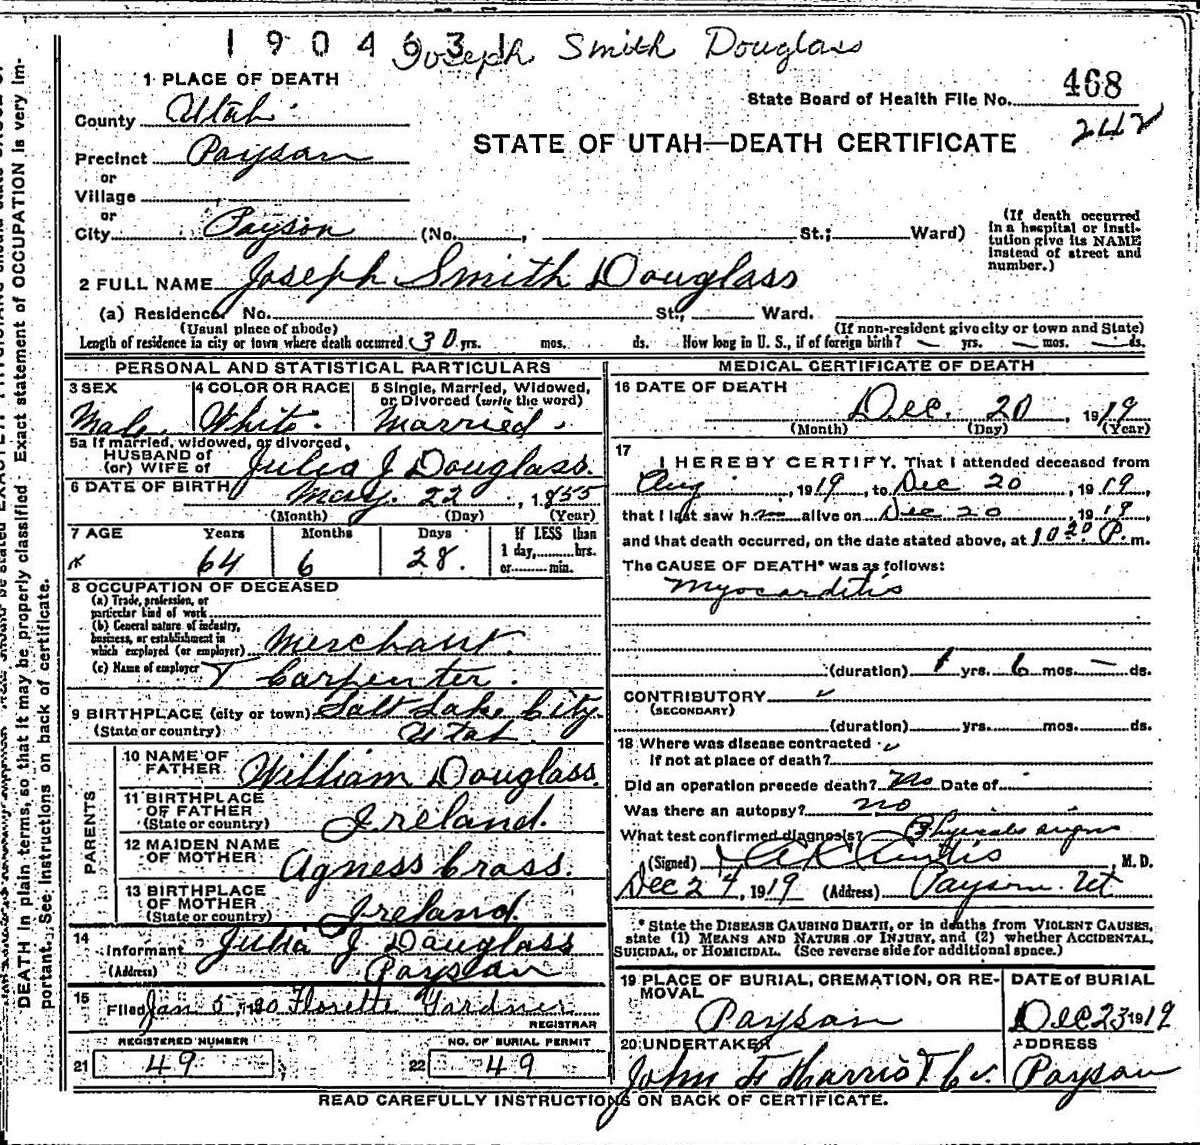 1904631
Joseph Smith Douglass
1 PLACE OF DEATH
County Utah
Precinct Payson
or
Village
or
City Payson (No. , St.; Ward)
State Board of Health File No. 468
242
STATE OF UTAH—DEATH CERTIFICATE
(If death occurred
in a hospital or insti-
tution give its NAME
instead of street and
number.)
2 FULL NAME Joseph Smith Douglass
(a) Residence. No. St., Ward.
(Usual place of abode) (If non-resident give city or town and State)
Length of residence in city or town where death occurred 30 yrs. mos. ds. How long in U. S., if of foreign birth? — yrs. — mos. — ds.
PERSONAL AND STATISTICAL PARTICULARS
3 SEX 4 COLOR OR RACE 5 Single, Married, Widowed,
or Divorced (write the word)
Male White Married.
5a If married, widowed, or divorced,
HUSBAND of
(or) WIFE of Julia J Douglass.
6 DATE OF BIRTH May. 22, 1855
(Month) (Day) (Year)
7 AGE Years Months Days If LESS than
1 day, hrs.
or min.
64 6 28.
8 OCCUPATION OF DECEASED
(a) Trade, profession, or
particular kind of work
(b) General nature of industry,
business, or establishment in
which employed (or employer) Merchant.
(c) Name of employer T Carpenter.
9 BIRTHPLACE (city or town) Salt Lake City
(State or country) Utah
PARENTS
10 NAME OF
FATHER William Douglass.
11 BIRTHPLACE
OF FATHER
(State or country) Ireland.
12 MAIDEN NAME
OF MOTHER Agness Cross.
13 BIRTHPLACE
OF MOTHER
(State or country) Ireland.
14
Informant Julia J Douglass
(Address) Payson
15
Filed Jan 5, 1920 Florette Gardner
REGISTRAR
REGISTERED NUMBER NO. OF BURIAL PERMIT
21 49 22 49
MEDICAL CERTIFICATE OF DEATH
16 DATE OF DEATH
Dec. 20, 1919
(Month) (Day) (Year)
17
I HEREBY CERTIFY. That I attended deceased from
Aug, 1919, to Dec 20, 1919,
that I last saw h alive on Dec 20, 1919
and that death occurred, on the date stated above, at 10 20 P. m.
The CAUSE OF DEATH* was as follows:
Myocarditis
(duration) 1 yrs. 6 mos. — ds.
CONTRIBUTORY
(SECONDARY)
(duration) yrs. mos. ds.
18 Where was disease contracted
if not at place of death?
Did an operation precede death? No Date of
Was there an autopsy? no
What test confirmed diagnosis? Physical signs
(Signed) Curtis, M. D.
Dec 24, 1919 (Address) Payson Ut
* State the DISEASE CAUSING DEATH, or in deaths from VIOLENT CAUSES,
state (1) MEANS AND NATURE OF INJURY, and (2) whether ACCIDENTAL,
SUICIDAL, or HOMICIDAL. (See reverse side for additional space.)
19 PLACE OF BURIAL, CREMATION, OR RE-
MOVAL DATE of BURIAL
Payson Dec 23 1919
20 UNDERTAKER ADDRESS
John F Harris Payson
READ CAREFULLY INSTRUCTIONS ON BACK OF CERTIFICATE.
Exact statement of OCCUPATION is very im-
DEATH in plain terms, so that it may be properly classified.
portant. See instructions on back of certificate.